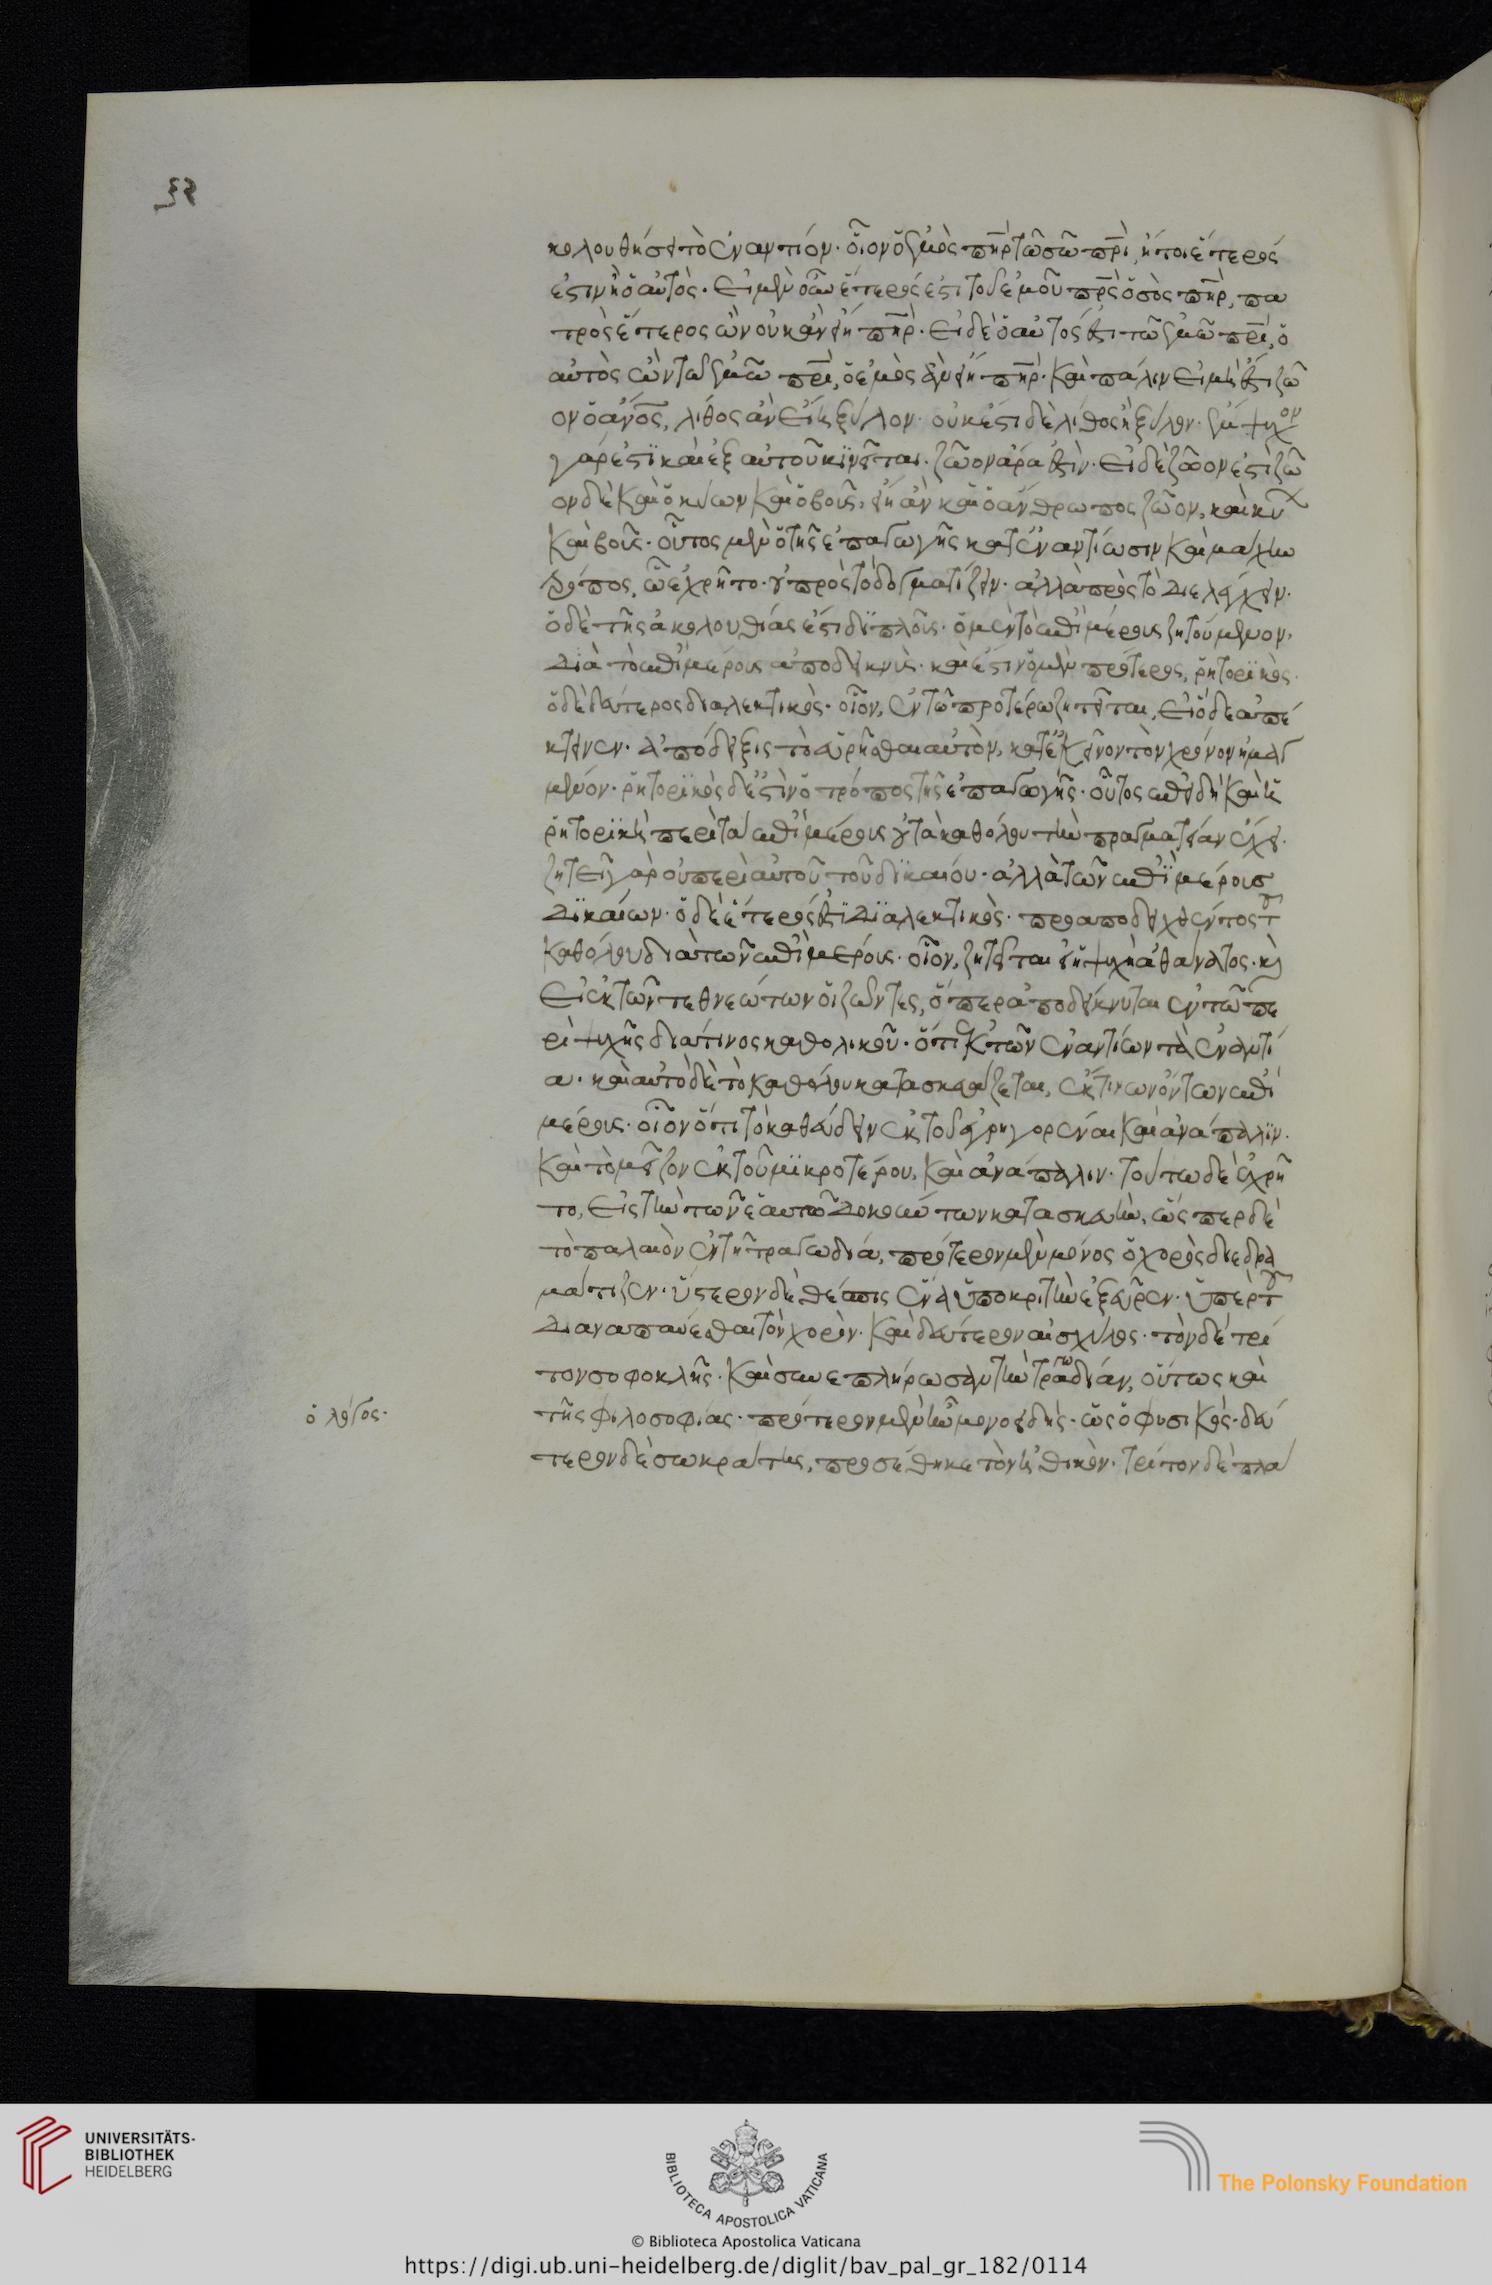 κολουθήσει τὸ ἐναντίον· οἷον ὁ ἐμὸς πη̅ρ τῶ σῶ πρ̅ι, ἤτοι ἕτερός
ἐστιν ἢ ὁ αὐτὸς· εἰ μὲν οὖν ἕτερός ἐστι τοῦ ἐμοῦ πρ̅ς ὁ σὸς πη̅ρ, πα
τρὸς ἕτερος ὢν οὐκ ἂν εἴη πη̅ρ· εἰ δὲ ὁ αὐτός ἐστι τῶ ἐμῶ πρ̅ι, ὁ
αὐτὸς ὢν τῶ ἐμῶ πρ̅ι, ὁ ἐμὸς ἂν εἴη πη̅ρ· καὶ πάλιν εἰ μή ἐστι ζῶ
ον ὁ ἄνο̅ς, λίθος ἂν εἴη ἢ ξύλον· οὐκ ἔστι δὲ λίθος ἢ ξύλον· ἔμψυχον
γάρ ἐστι καὶ ἐξ αὑτοῦ κινεῖται· ζῶον ἄρα ἐστὶν· εἰ δὲ ζῶον ἐστὶ ζῶ
ον δὲ καὶ ὁ κύων καὶ ὁ βοῦς, εἴη ἂν καὶ ὁ ἄνθρωπος ζῶον, καὶ κύ
καὶ βοῦς· οὗτος μὲν ὁ τῆς ἐπαγωγῆς κατ' ἐναντίωσιν καὶ μάχην
τρόπος, ὧ ἐχρῆτο· οὐ πρὸς τὸ δογματίζειν· ἀλλὰ πρὸς τὸ διελέγχειν·
ὁ δὲ τῆς ἀκολουθίας ἐστὶ διπλοῦς· ὁ μὲν τὸ ἐπὶ μέρους ζητούμενον,
διὰ τὸ ἐπὶ μέρους ἀποδεικνὺς· καὶ ἔστιν ὁ μὲν πρότερος, ῥητορικὸς·
ὁ δὲ δεύτερος διαλεκτικὸς· οἷον, ἐν τῶ προτέρω ζητεῖται, εἰ ὅδε ἀπέ
κτεινεν· ἀπόδειξις τὸ εὑρῆσθαι αὐτὸν, κατ' ἐκεῖνον τὸν χρόνον ἡμαγ
μένον· ῥητορικὸς δ' ἐστὶν ὁ τρόπος τῆς ἐπαγωγῆς· οὗτος ἐπειδὴ καὶ ἡ
ῥητορικὴ περὶ τὰ ἐπὶ μέρους οὐ τὰ καθόλου τὴν πραγματείαν ἔχει·
ζητεῖ γὰρ οὐ περὶ αὐτοῦ τοῦ δικαίου· ἀλλὰ τῶν ἐπὶ μέρους
δικαίων· ὁ δὲ ἕτερός ἐστι διαλεκτικὸς· προαποδειχθέντος τοῦ
καθόλου διὰ τῶν ἐπὶ μέρους· οἷον, ζητεῖται εἰ ἡ ψυχὴ ἀθάνατος· καὶ
εἰ ἐκ τῶν τεθνεώτων οἱ ζῶντες, ὅπερ ἀποδείκνυται ἐν τῶ πε
ρὶ ψυχῆς διά τινος καθολικοῦ· ὅτι ἐκ τῶν ἐναντίων τὰ ἐναντί
α· καὶ αὐτὸ δὲ τὸ καθόλου κατασκευάζεται, ἔκ τινων ὄντων ἐπὶ
μέρους· οἷον ὅτι τὸ καθεύδειν ἐκ τοῦ ἐγρηγορέναι καὶ ἀνάπαλιν·
καὶ τὸ μεῖζον ἐκ τοῦ μικροτέρου, καὶ ἀνάπαλιν· τούτω δὲ ἐχρῆ
το, εἰς τὴν τῶν ἑαυτῶ δοκούντων κατασκευὴν, ὥσπερ δὲ
τὸ παλαιὸν ἐν τῆ τραγωδία, πρότερον μὲν μόνος ὁ χορὸς διεδρα
μάτιζεν· ὕστερον δὲ θέσπις ἕνα ὑποκριτὴν ἐξεῦρεν· ὑπὲρ τοῦ
διαναπαύεσθαι τὸν χορὸν· καὶ δεύτερον αἰσχύλος· τὸν δὲ τρί
τον σοφοκλῆς· καὶ συνεπλήρωσαν τὴν τραγωδίαν, οὕτως καὶ
τῆς φιλοσοφίας· πρότερον μὲν ἦν μονοειδὴς· ὡς ὁ φυσικὸς· δεύ
τερον δὲ σωκράτης, προσέθηκε τὸν ἠθικὸν· τρίτον δὲ πλά
ὁ λόγος·
UNIVERSITÄTS-
BIBLIOTHEK
HEIDELBERG
BIBLIOTECA APOSTOLICA VATICANA
The Polonsky Foundation
© Biblioteca Apostolica Vaticana
https://digi.ub.uni-heidelberg.de/diglit/bav_pal_gr_182/0114